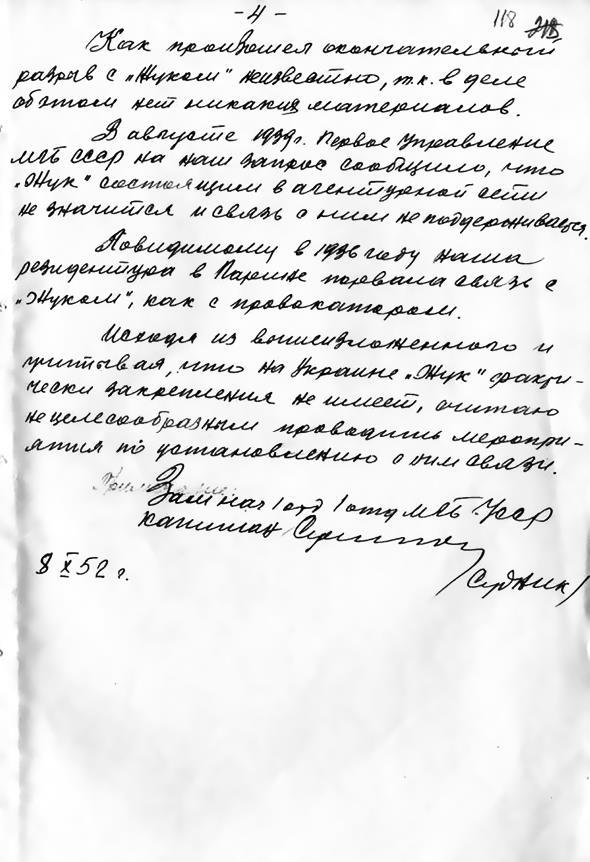 -4-
118 218
Как произошел окончательный
разрыв с „Жуком" неизвестно, т.к. в деле
об этом нет никаких материалов.
В августе 1939 г. Первое Управление
МГБ СССР на наш запрос сообщило, что
„Жук" состоящим в агентурной сети
не значится и связь с ним не поддерживается.
Повидимому в 1936 году наша
резидентура в Париже порвала связь с
„Жуком", как с провокатором.
Исходя из вышеизложенного и
учитывая, что на Украине „Жук" факти-
чески закрепления не имеет, считаю
нецелесообразным проводить меропри-
ятия по установлению с ним связи.
Зам нач 1 отд 1 отд МГБ УССР
капитан
8 X 52 г.